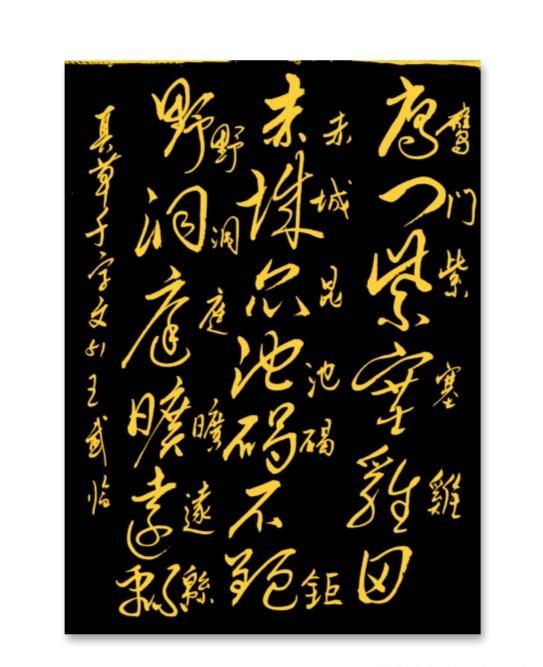 鴈門紫塞雞田
鴈門紫塞雞
赤城昆池碣石鉅
赤城昆池碣鉅
野洞庭曠遠緜
野洞庭曠遠緜
真草千字文王武临